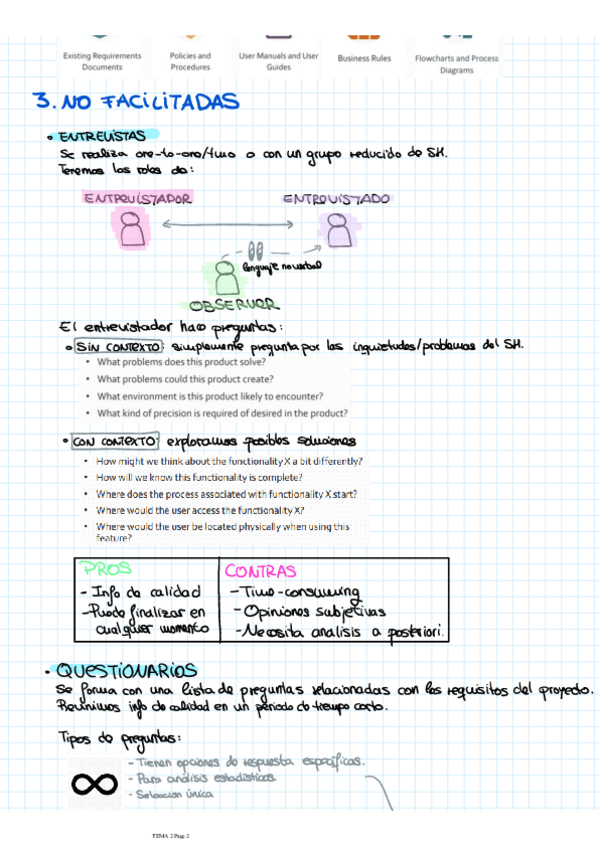 Existing Requirements Documents
Policies and Procedures
User Manuals and User Guides
Business Rules
Flowcharts and Process Diagrams
3. NO FACILITADAS
• ENTREVISTAS
Se realiza one-to-one/two o con un grupo reducido de SH.
Tenemos los roles de:
ENTREVISTADOR
ENTREVISTADO
lenguaje no verbal
OBSERVOR
El entrevistador hace preguntas:
• SIN CONTEXTO: simplemente pregunta por las inquietudes/problemas del SH.
• What problems does this product solve?
• What problems could this product create?
• What environment is this product likely to encounter?
• What kind of precision is required of desired in the product?
• CON CONTEXTO: exploramos posibles soluciones
• How might we think about the functionality X a bit differently?
• How will we know this functionality is complete?
• Where does the process associated with functionality X start?
• Where would the user access the functionality X?
• Where would the user be located physically when using this
feature?
PROS
- Info de calidad
- Puede finalizar en
cualquier momento
CONTRAS
- Time-consuming
- Opiniones subjetivas
- Necesita analisis a posteriori.
• QUESTIONARIOS
Se forma con una lista de preguntas relacionadas con los requisitos del proyecto.
Reunimos info de calidad en un periodo de tiempo corto.
Tipos de preguntas:
- Tienen opciones de respuesta específicas.
- Para análisis estadísticos.
- Seleccion única
TEMA 2 Page 2